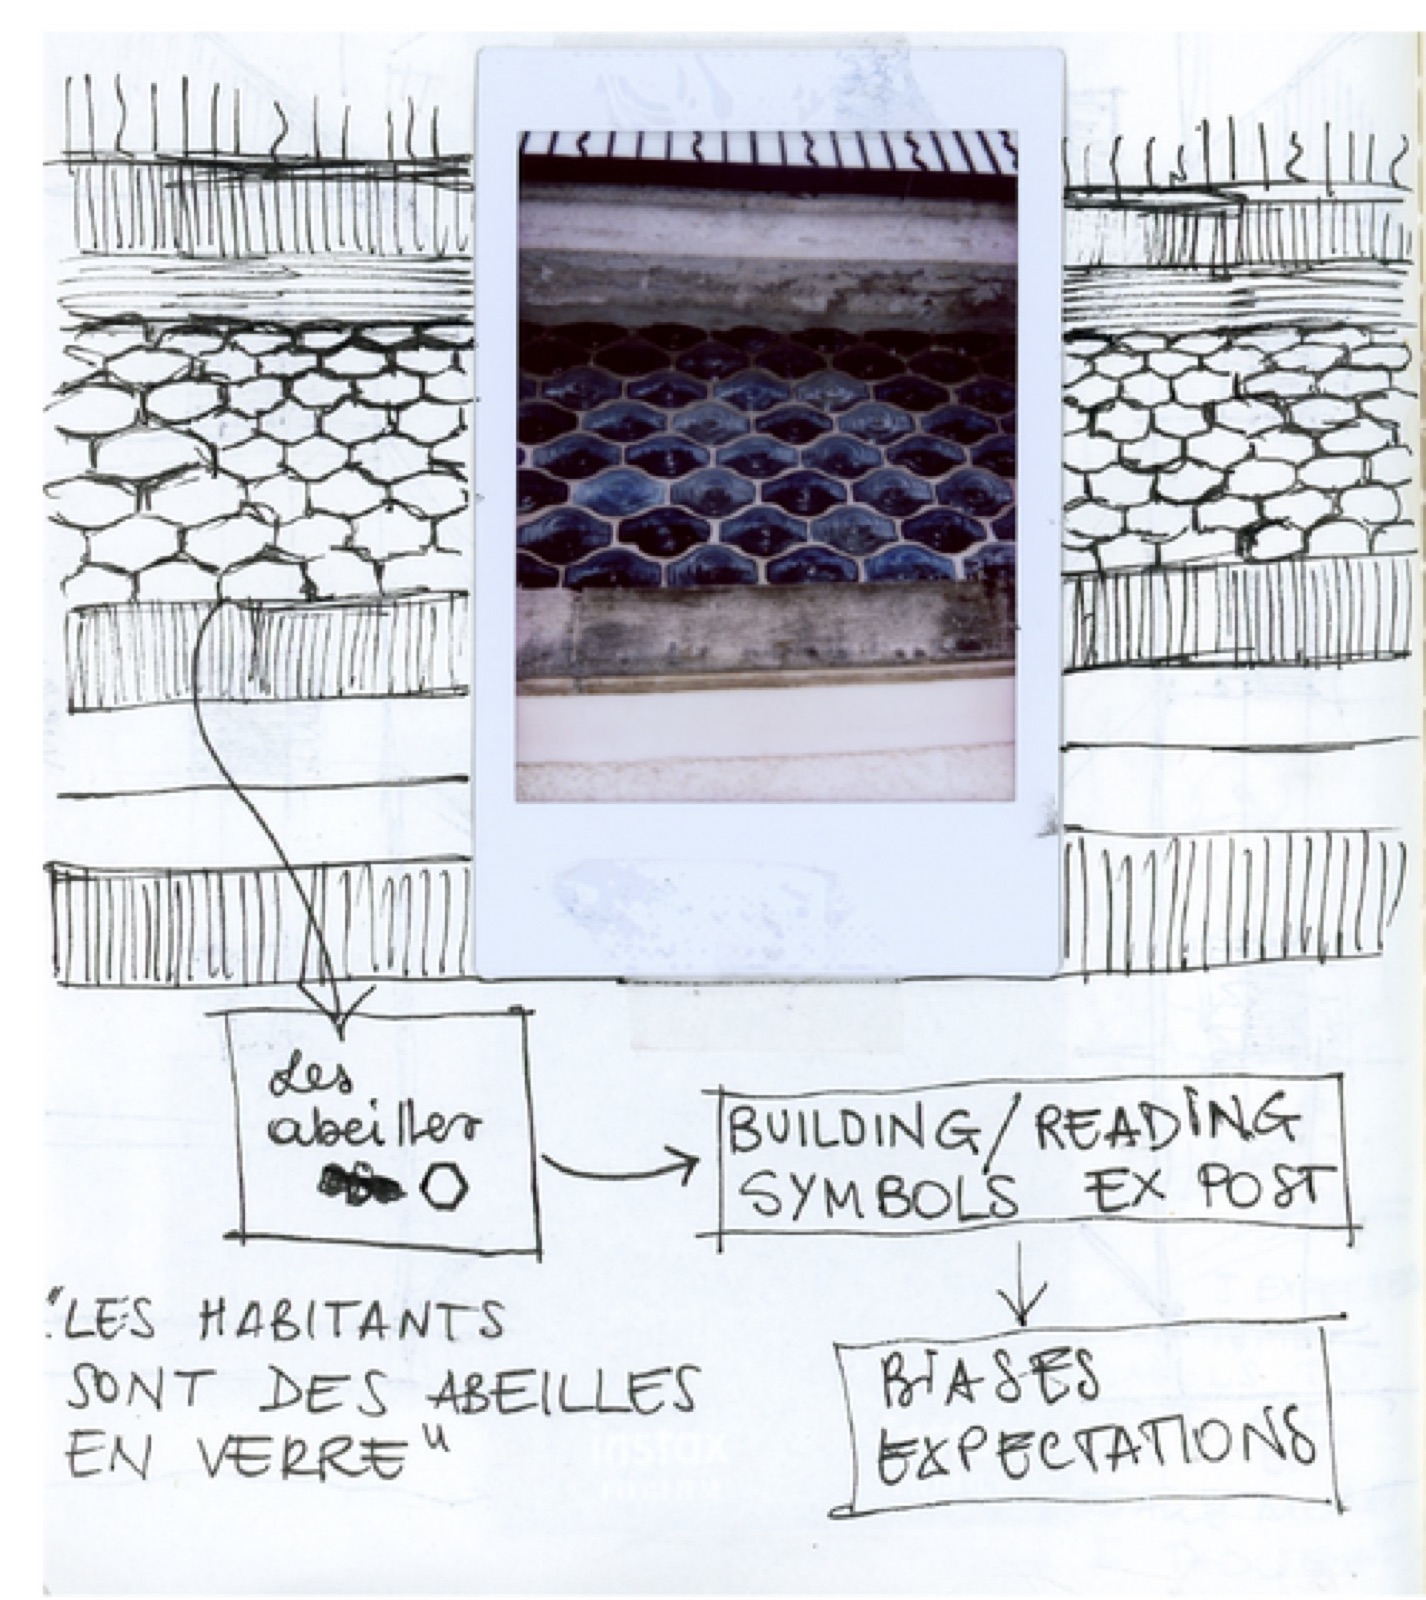 Les
abeilles
BUILDING/READING
SYMBOLS EX POST
"LES HABITANTS
SONT DES ABEILLES
EN VERRE"
BIASES
EXPECTATIONS
instax